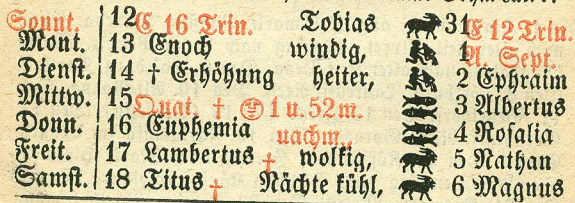 Sonnt. 12 E 16 Trin. Tobias 31 E 12 Trin.
Mont. 13 Enoch windig, 1 A. Sept.
Dienst. 14 † Erhöhung heiter, 2 Ephraim
Mittw. 15 Quat. † 1 u. 52 m. 3 Albertus
Donn. 16 Euphemia uachm., 4 Rosalia
Freit. 17 Lambertus † wolkig, 5 Nathan
Samst. 18 Titus † Nächte kühl, 6 Magnus